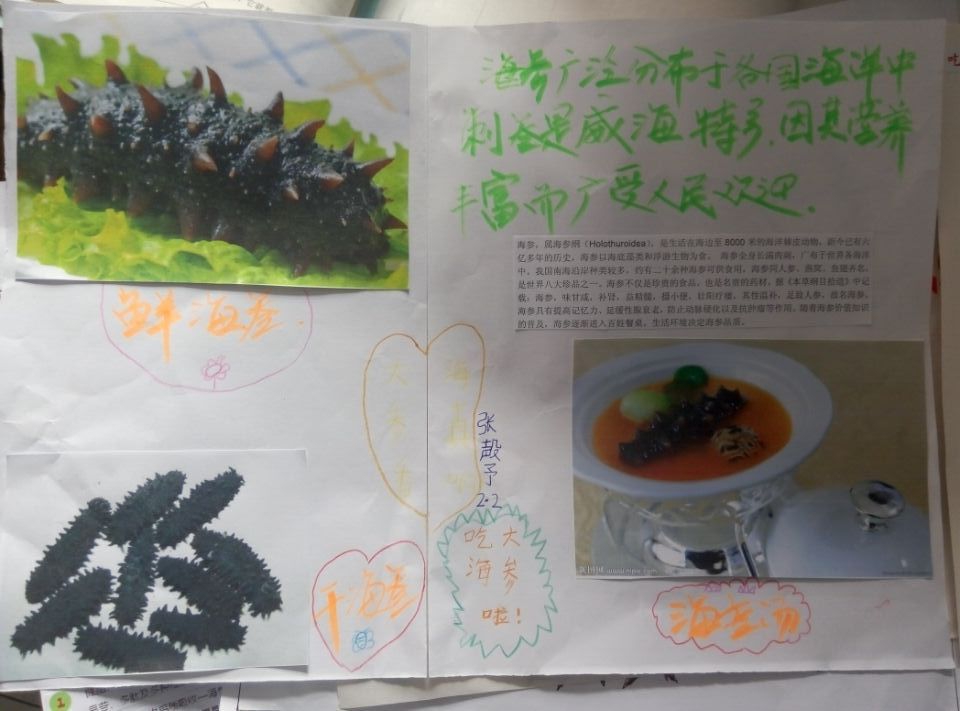 海参广泛分布于各国海洋中
刺参是威海特产.因其营养
丰富而广受人民欢迎.
海参，属海参纲（Holothuroidea），是生活在海边至 8000 米的海洋棘皮动物，距今已有六
亿多年的历史，海参以海底藻类和浮游生物为食。 海参全身长满肉刺，广布于世界各海洋
中。我国南海沿岸种类较多，约有二十余种海参可供食用，海参同人参、燕窝、鱼翅齐名，
是世界八大珍品之一。海参不仅是珍贵的食品，也是名贵的药材。据《本草纲目拾遗》中记
载：海参，味甘咸，补肾，益精髓，摄小便，壮阳疗痿，其性温补，足敌人参，故名海参。
海参具有提高记忆力、延缓性腺衰老，防止动脉硬化以及抗肿瘤等作用。随着海参价值知识
的普及，海参逐渐进入百姓餐桌，生活环境决定海参品质。
鲜海参.
张
予
2.2
吃大
海参
啦！
干海参
海参汤